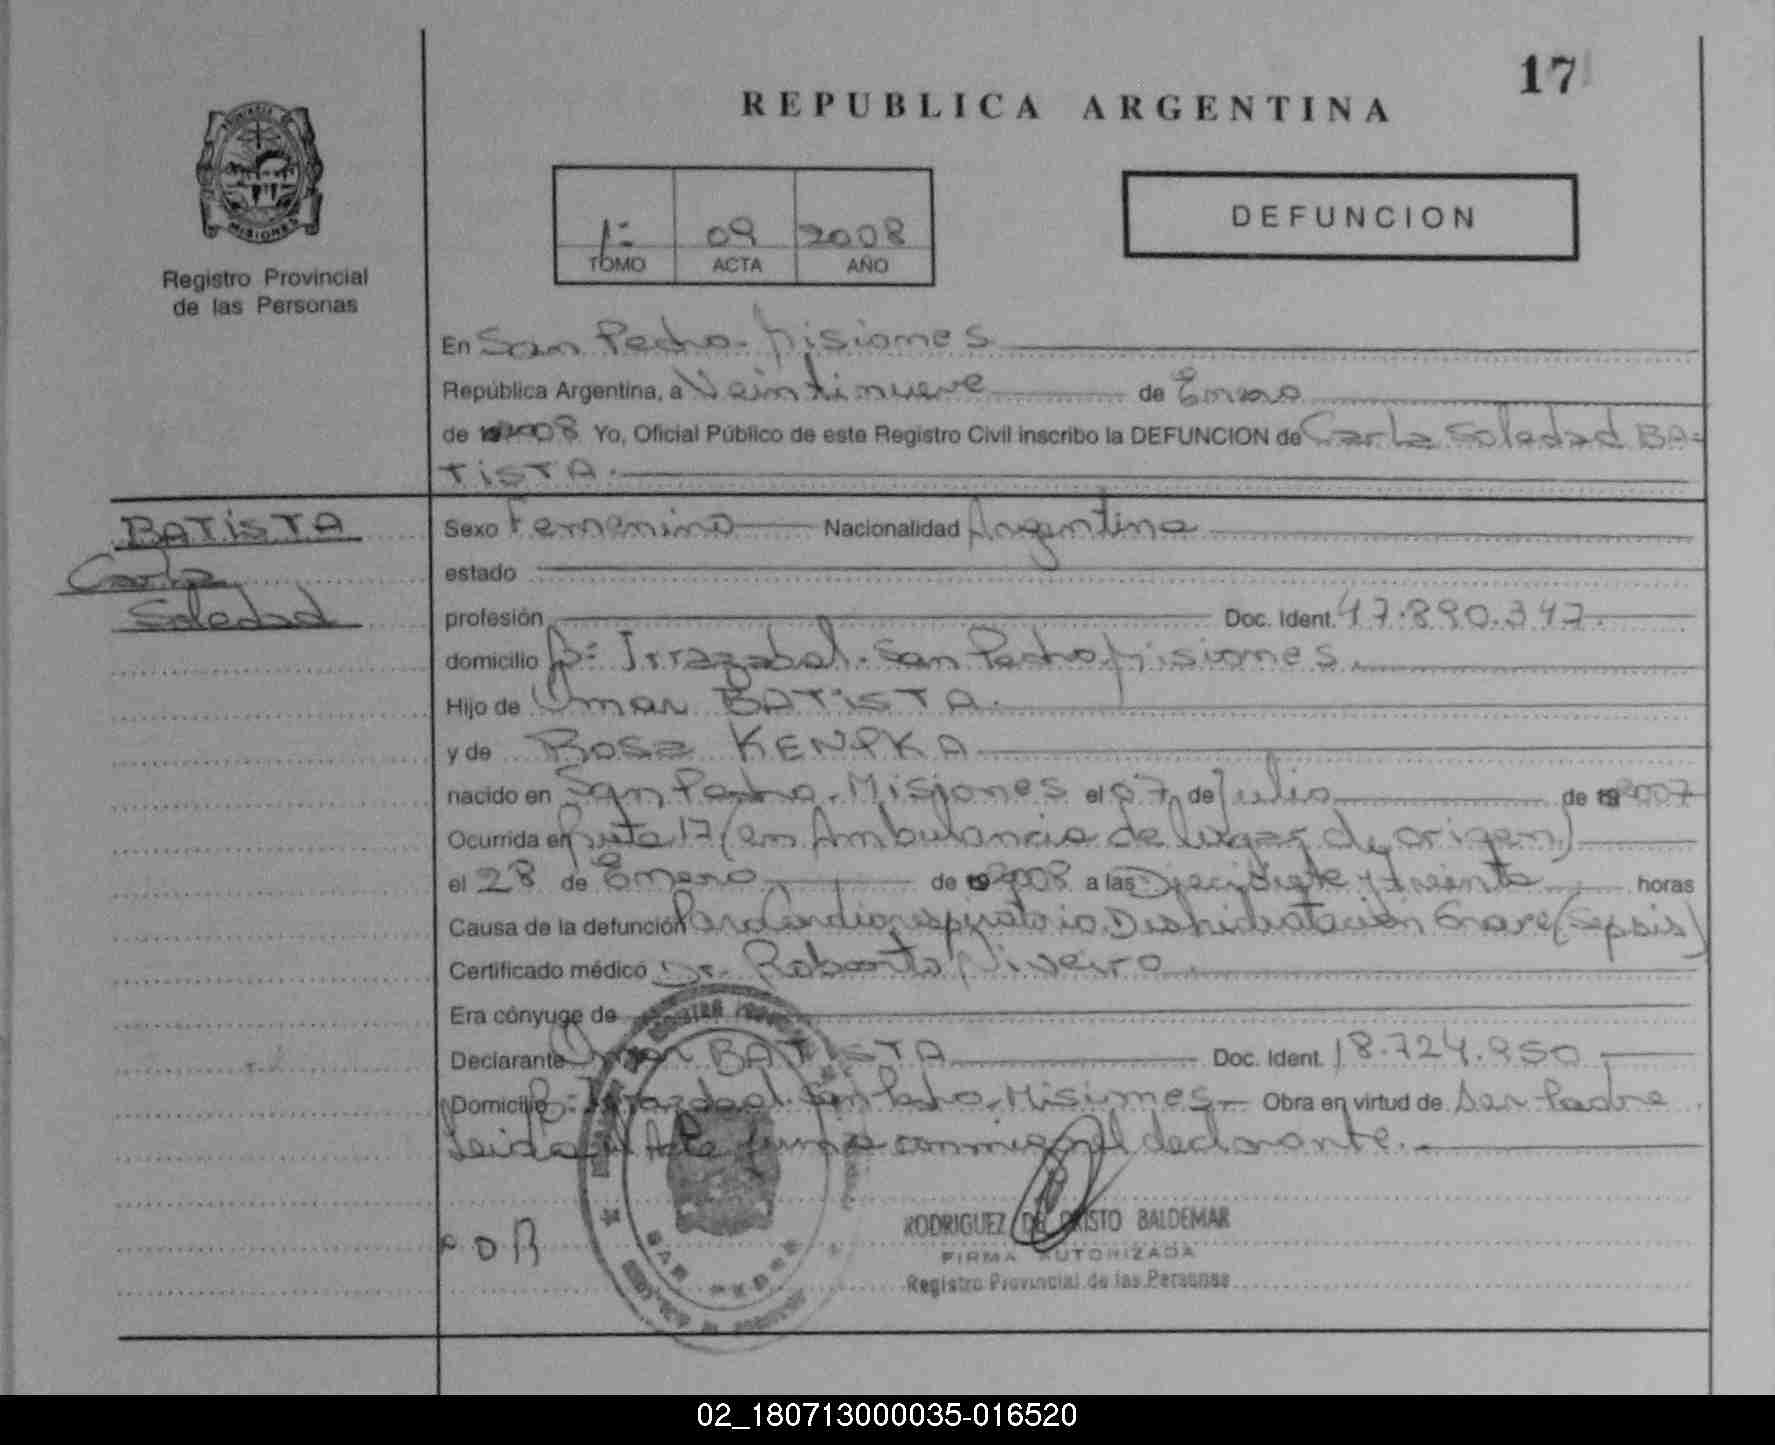 17
REPUBLICA ARGENTINA
PROVINCIA DE
MISIONES
Registro Provincial
de las Personas
1º 09 2008
TOMO ACTA AÑO
DEFUNCION
En San Pedro - Misiones
República Argentina, a Veintinueve de Enero
de 2008 Yo, Oficial Público de este Registro Civil inscribo la DEFUNCION de Carla Soledad BA-
TISTA.
BATISTA
Carla
Soledad
Sexo Femenino Nacionalidad Argentina
estado
profesión Doc. Ident. 47.890.347.
domicilio Bº Irrazabal. San Pedro Misiones.
Hijo de Omar BATISTA.
y de Rosa KENPKA
nacido en San Pedro - Misiones el 07 de Julio de 2007
Ocurrida en Ruta 17 (en Ambulancia de lugar de origen)
el 28 de Enero de 2008 a las Diecisiete y treinta horas
Causa de la defunción Paro Cardiorespiratorio Deshidratación Grave (Sepsis)
Certificado médico Dr. Roberto Niveiro
Era cónyuge de
Declarante Omar BATISTA Doc. Ident. 18.724.950
Domicilio Bº Irrazabal. San Pedro - Misiones - Obra en virtud de ser Padre
Leida el Acta firma conmigo el declarante.
SAN PEDRO
RODRIGUEZ DE CRISTO BALDEMAR
FIRMA AUTORIZADA
Registro Provincial de las Personas
02_180713000035-016520